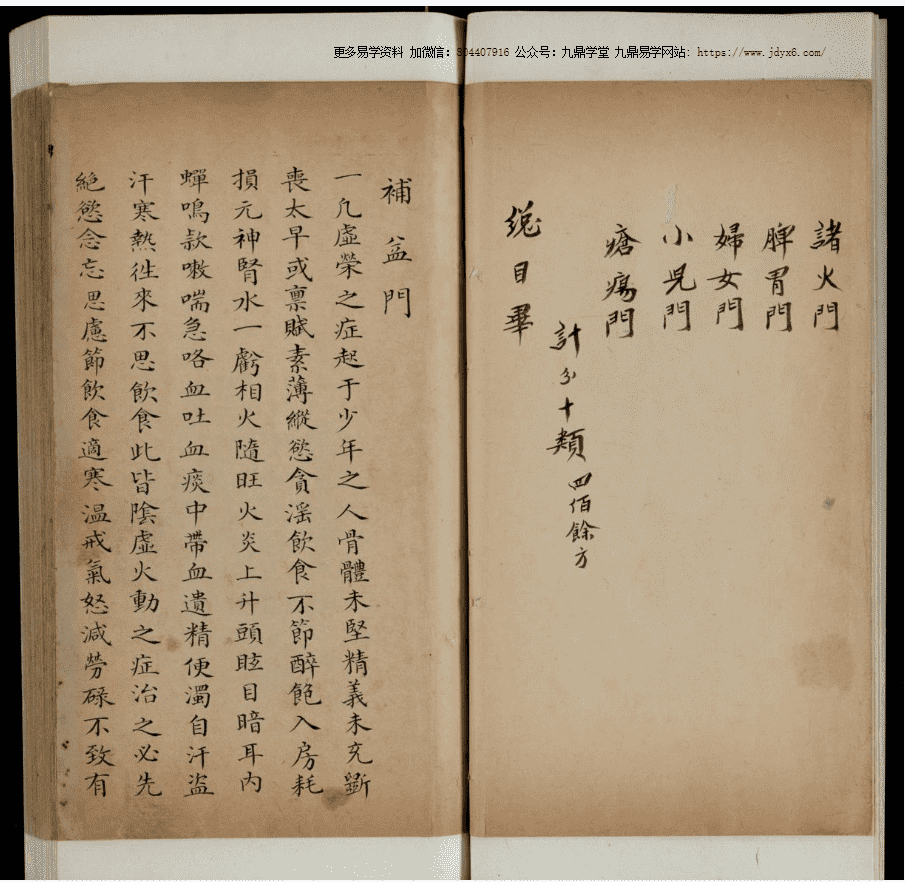 更多易学资料 加微信：304407916 公众号：九鼎学堂 九鼎易学网站: https://www.jdyx6.com/
諸火門
脾胃門
婦女門
小児門
瘡瘍門
計分十類 四佰餘方
總目畢
補益門
一凢虛榮之症起于少年之人骨體未堅精義未充斵
喪太早或禀賦素薄縱慾貪淫飲食不節醉飽入房耗
損元神腎水一虧相火隨旺火炎上升頭眩目暗耳内
蟬鳴欬嗽喘急咯血吐血痰中帶血遺精便濁自汗盗
汗寒熱徃來不思飲食此皆陰虛火動之症治之必先
絕慾念忘思慮節飲食適寒温戒氣怒減勞碌不致有